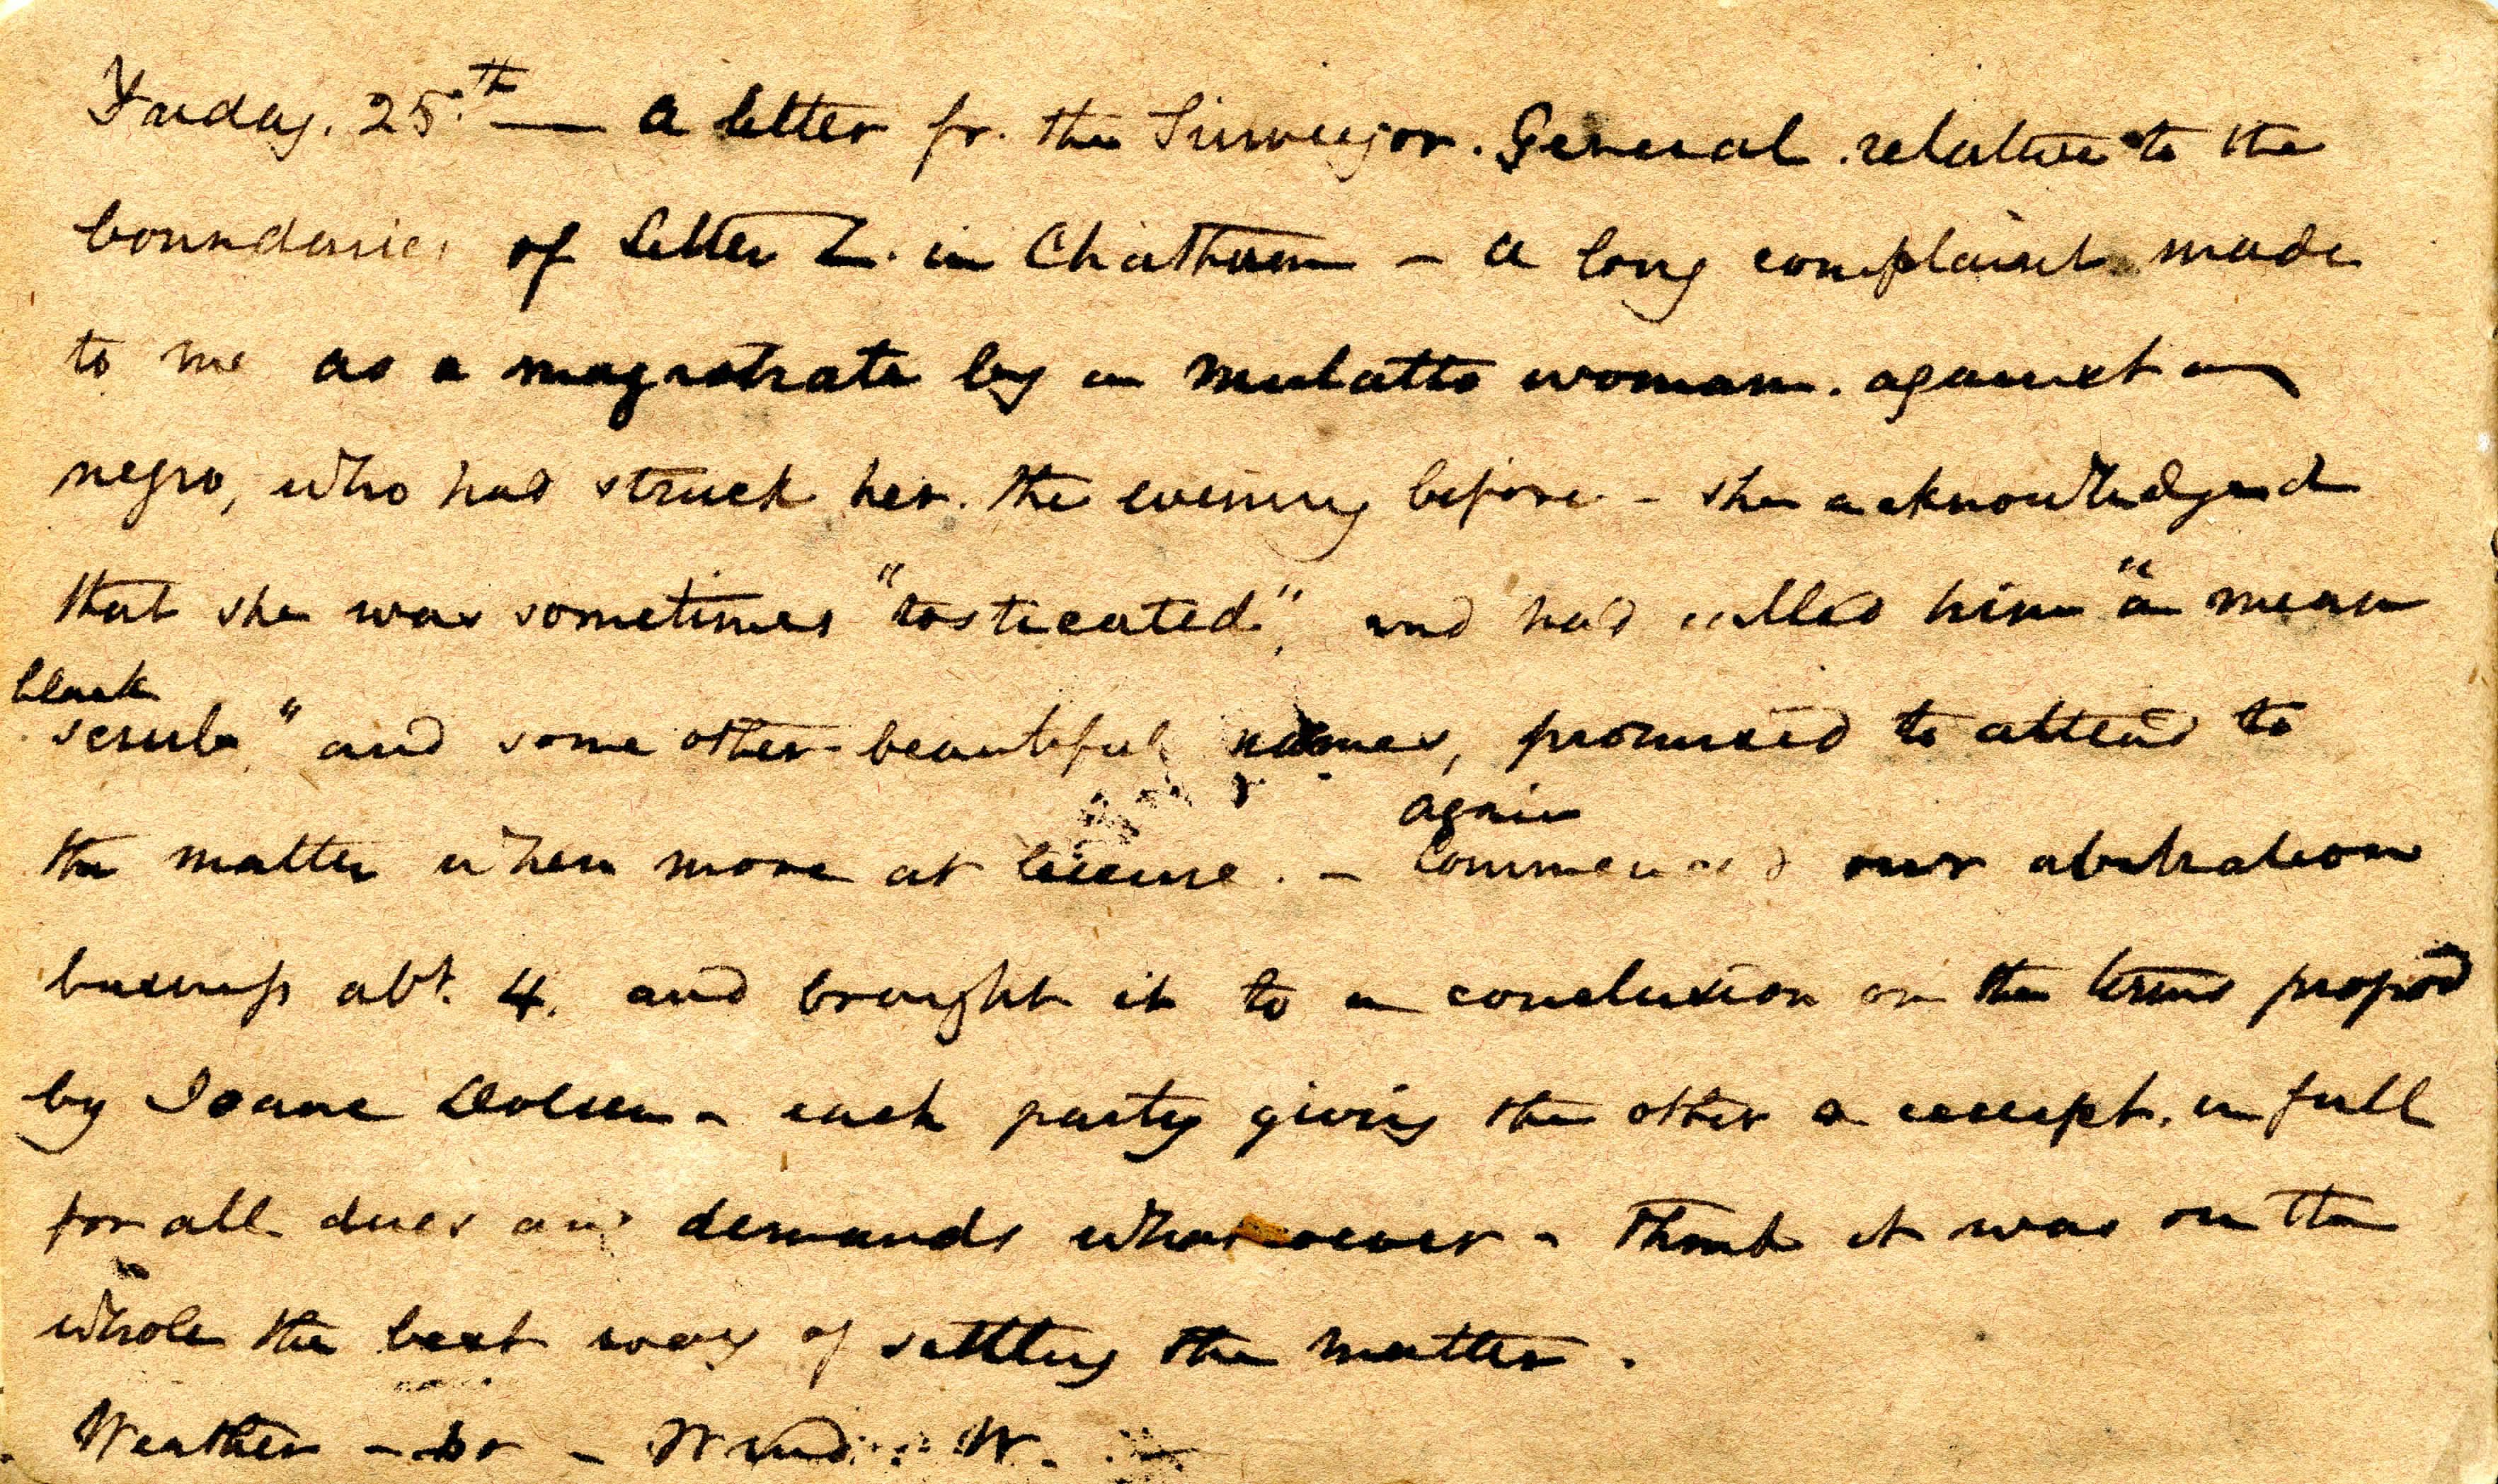 Friday. 25.th — A letter fr. the Surveyor. General. relative to the
boundaries of Letter Z. in Chatham – a long complaint made
to me as a magistrate by a mulatto woman. against a
negro, who had struck her. the evening before – she acknowledged
that she was sometimes "tosticated", and had called him "a mean
black
scrub" and some other beautiful names, promised to attend to
again
the matter when more at leisure. – Commenced our abitration
business abt. 4. and brought it to a conclusion on the terms propos'd
by Isaac Dolsen – each party giving the other a receipt. in full
for all dues and demands whatsoever – Think it was on the
whole the best way of settling the matter.
Weather – Do – Wind: W. –